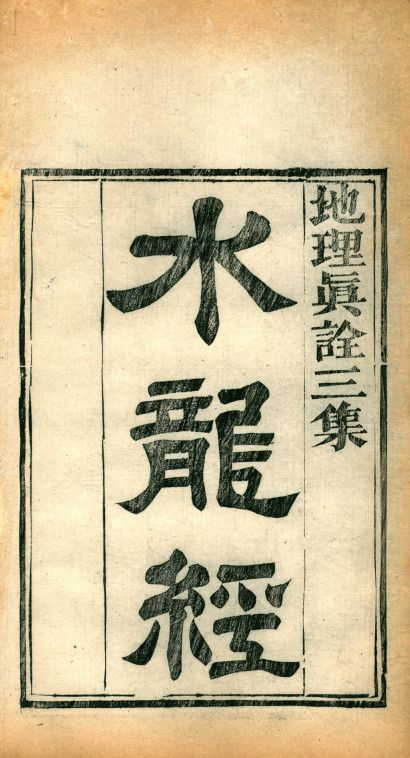 地理眞詮三集
水龍經